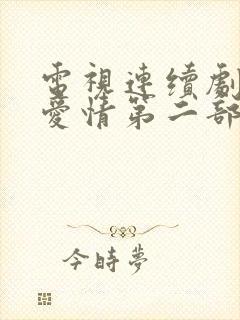 電視連續劇
愛情第二部
今時夢